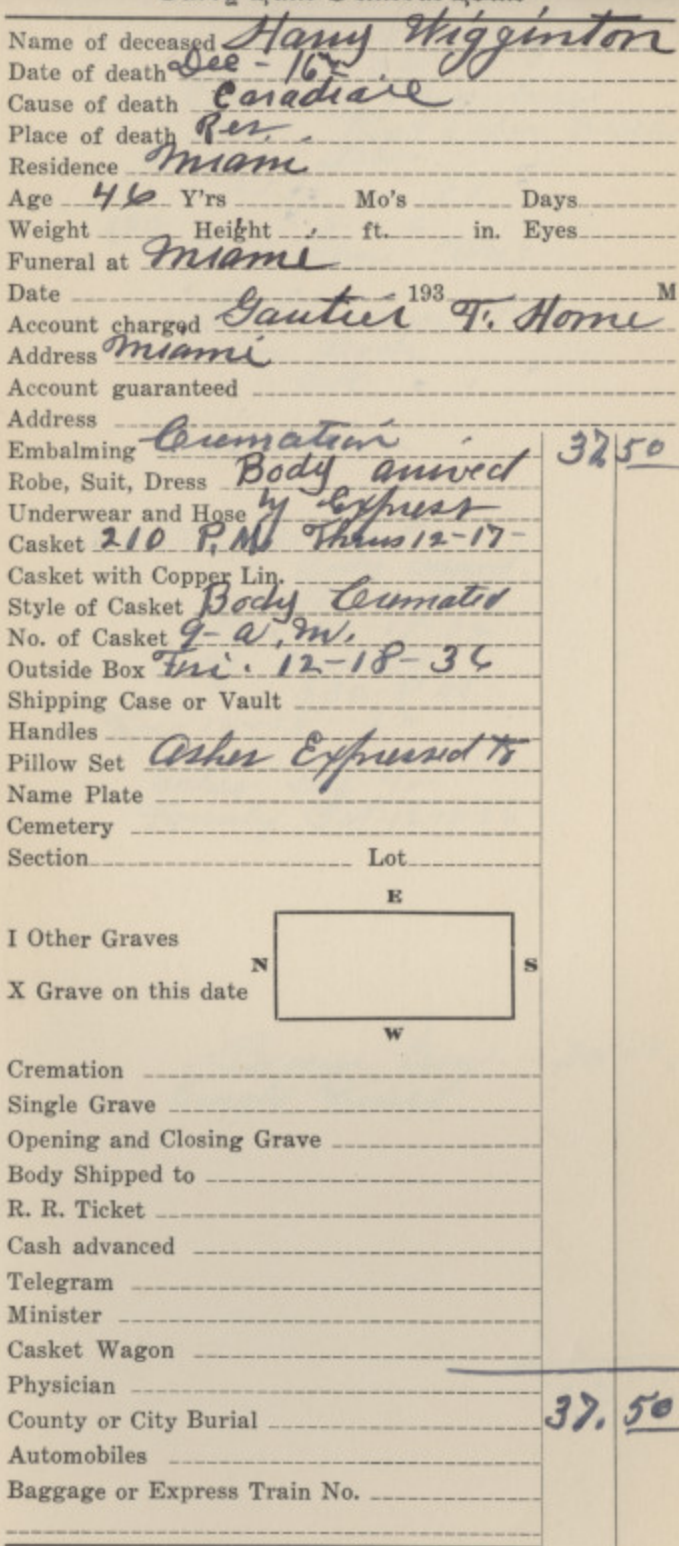 Name of deceased Harry Wigginton
Date of death Dec - 16
Cause of death Caradiace
Place of death Res.
Residence Miami
Age 46 Y'rs Mo's Days
Weight Height ft. in. Eyes
Funeral at Miami
Date 193 M
Account charged Gautier F. Home
Address Miami
Account guaranteed
Address
Embalming Cremation 37 50
Robe, Suit, Dress Body arrived
Underwear and Hose by Express
Casket 210 P.M. Thurs 12-17-
Casket with Copper Lin.
Style of Casket Body Cremated
No. of Casket 9- a.m.
Outside Box Fri. 12-18-36
Shipping Case or Vault
Handles
Pillow Set Ashes Expressed to
Name Plate
Cemetery
Section Lot
E
I Other Graves
N S
X Grave on this date
W
Cremation
Single Grave
Opening and Closing Grave
Body Shipped to
R. R. Ticket
Cash advanced
Telegram
Minister
Casket Wagon
Physician
County or City Burial 37. 50
Automobiles
Baggage or Express Train No.